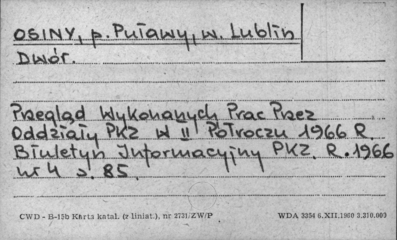 OSINY, p. Puławy, w. Lublin
Dwór.
Przegląd Wykonanych Prac Przez
Oddziały PKZ w II Półroczu 1966 R.
Biuletyn Informacyjny PKZ. R. 1966
nr 4 s. 85.
CWD - B-15b Karta katal. (z liniat.), nr 2731/ZW/P WDA 3354 6.XII.1960 3.210.003